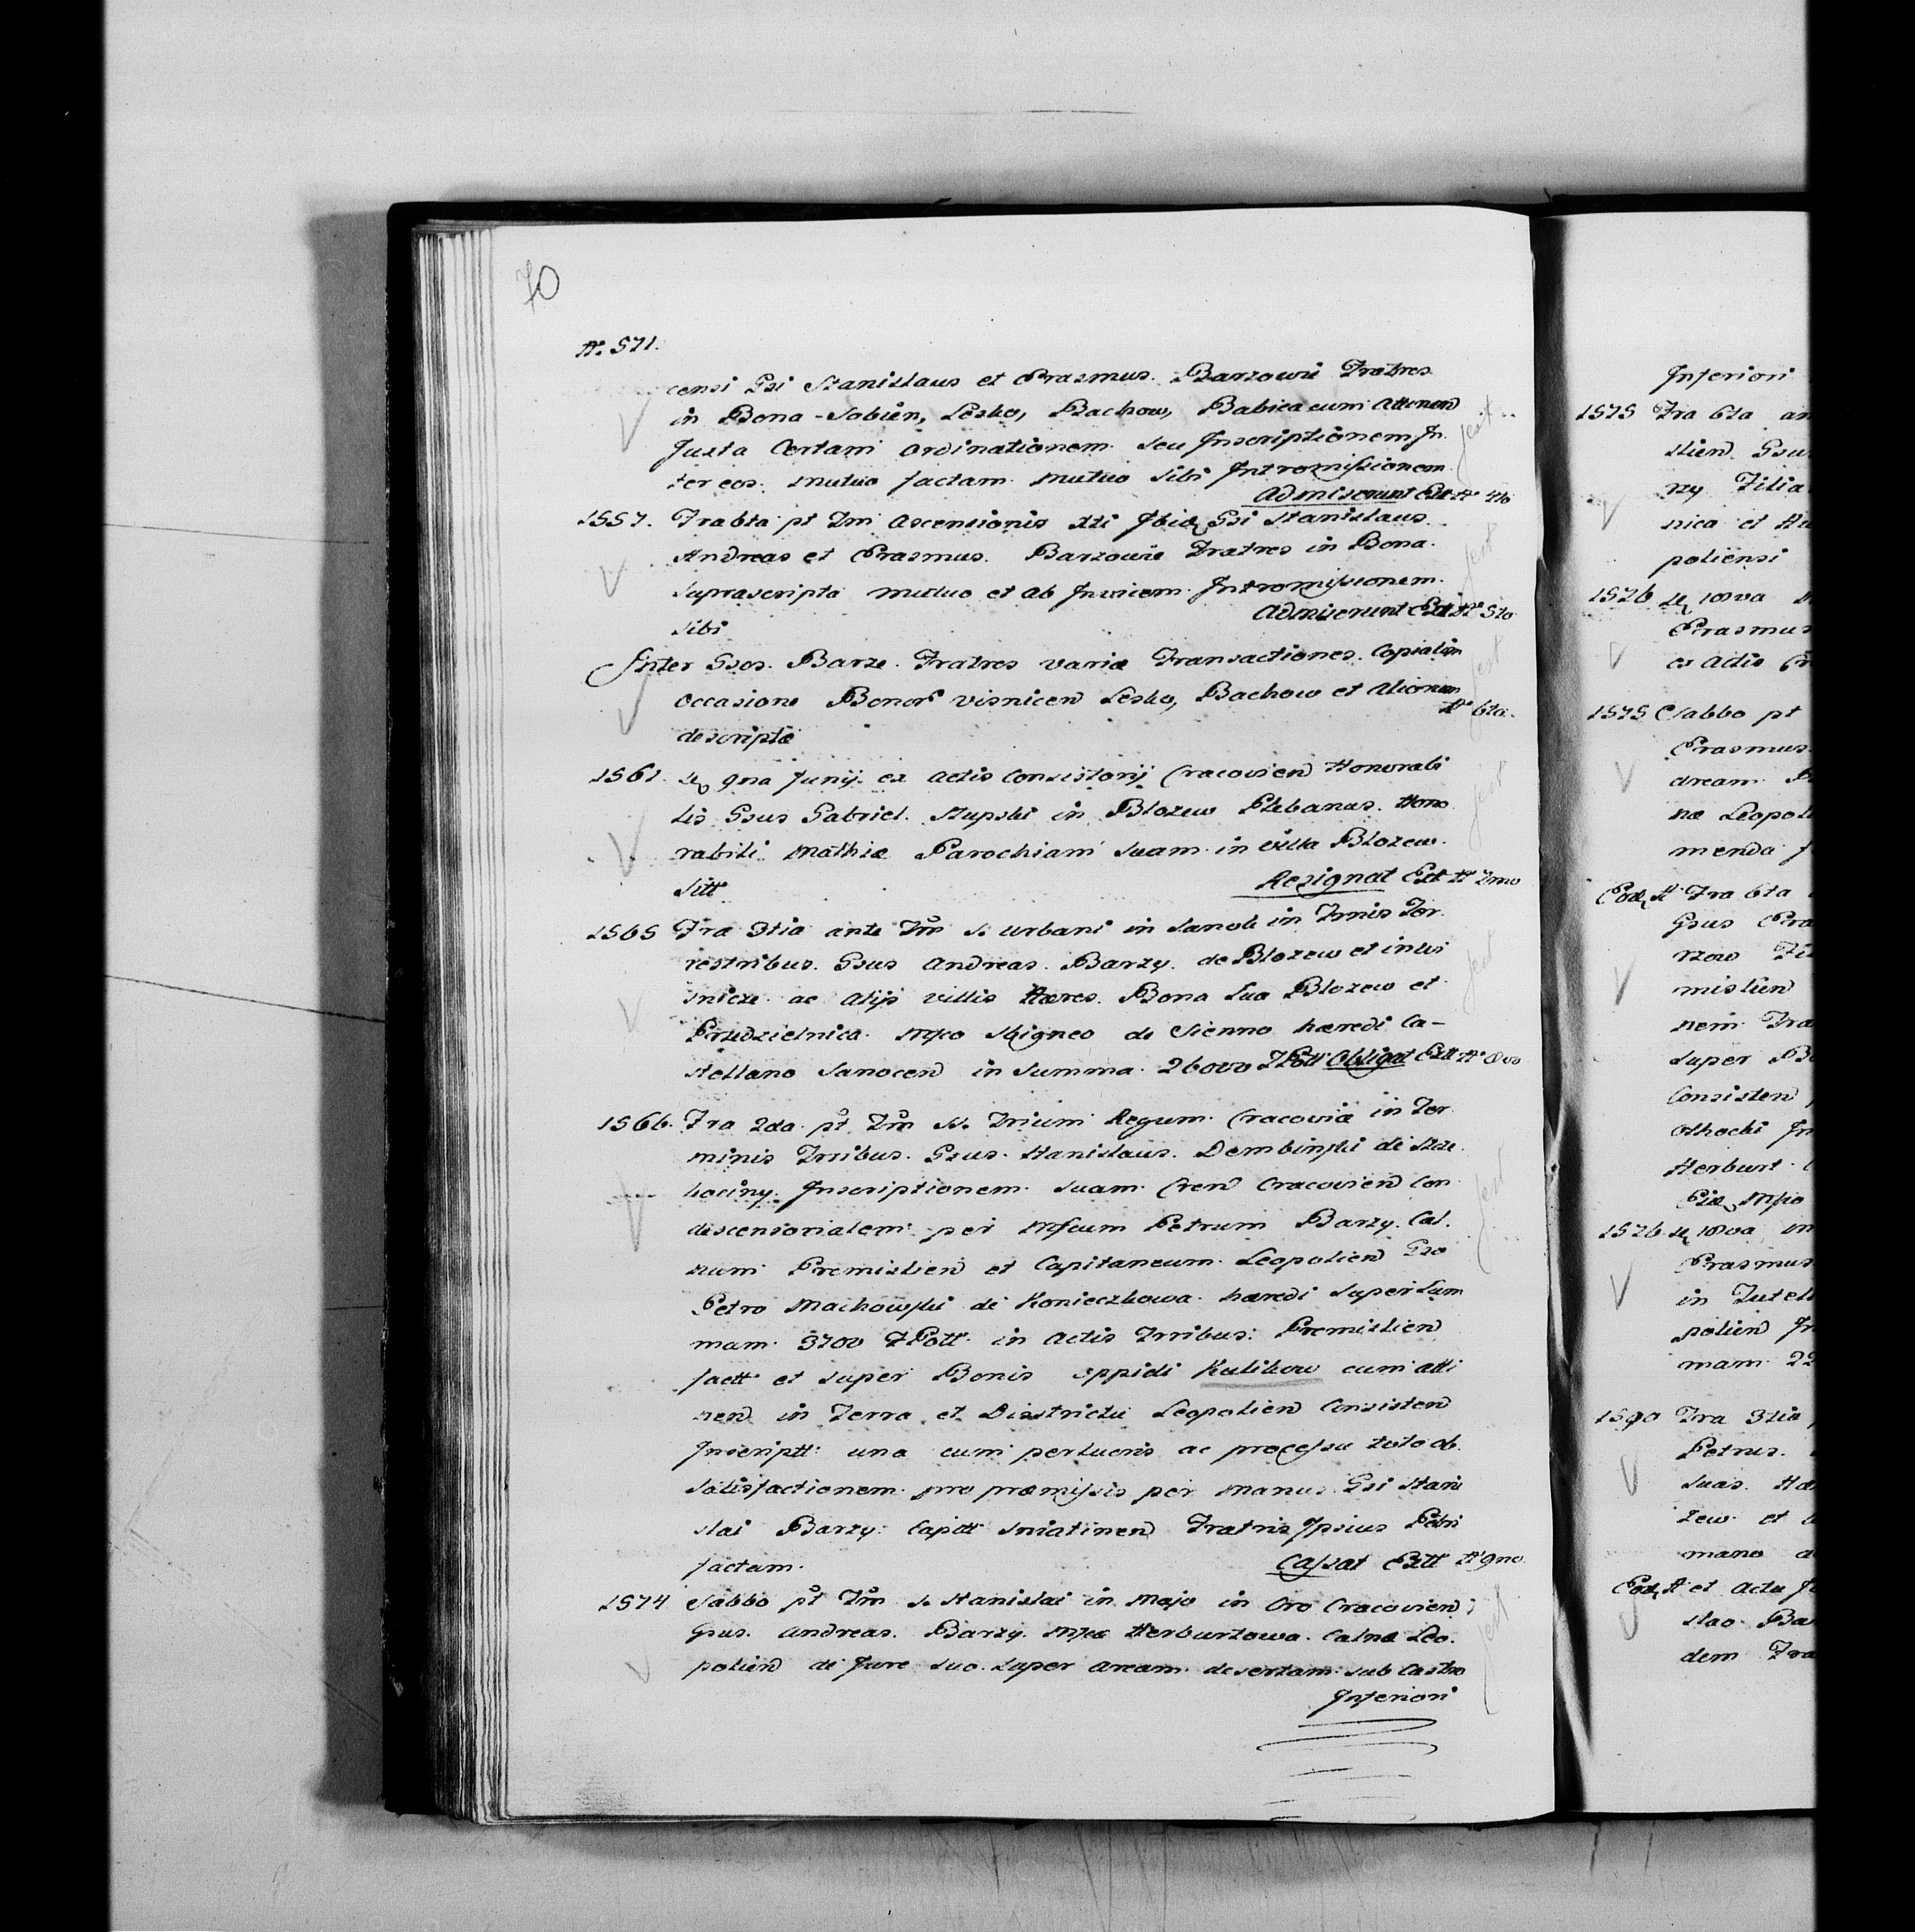 70
N. 571.
censi Gsi Stanislaus et Erasmus. Barzowie Fratres
in Bona - Sobien, Lesko, Bachow, Babica cum Attinen
Juxta Certam Ordinationem seu Inscriptionem In
ter eos mutuo factam mutuo sibi Intromissionem
Admiserunt Extt No 4to
1557. Fra 6ta pt Fm Ascensionis Xti Ibid Gsi Stanislaus
Andreas et Erasmus. Barzowie Fratres in Bona
Suprascripta mutuo et ab Invicem Intromissionem
sibi Admiserunt Ext No 5to
Inter Gsos. Barze. Fratres variæ Transactiones. Copiatim
occasione Bonor Visnicen Lesko, Bachow et Aliorum
descriptæ No 6to.
1561. 9na Junij ex Actis Consistorij Cracovien Honorabi
lis Gsus Gabriel. Slupski in Blozew Plebanus. Hono
rabili Mathiæ Parochiam suam in Villa Blozew
Sitt Resignat Ext No 7mo
1565 Fra 3tia ante Fm S. Urbani in Sanok in Tmis Ter
restribus. Gsus Andreas. Barzy. de Blozew et in Wi
snicze ac Alijs villis Hæres. Bona Sua Blozew et
Przedzielnica Mfco Sbigneo de Sienno hæredi Ca-
stellano Sanocen in Summa 26000 FPoll Obligat Extt No 8vo
1566. Fra 2da pt Fm SS. Trium Regum Cracoviæ in Ter
minis Trribus. Gsus. Stanislaus. Dembinski de Szcze
kociny. Inscriptionem suam Cren Cracovien Con
descensorialem per Mfcum Petrum Barzy. Cas.
num Premislien et Capitaneum Leopolien Gso
Petro Machowski de Konieczkowa hæredi super Sum
mam 3700 FPoll in Actis Trribus Premislien
factt et super Bonis oppidi Kulikow cum atti
nen in Terra et Districtu Leopolien Consisten
Inscriptt una cum perlucris ac processu toto ob
satisfactionem pro præmissis per manus Gsi Stani
slai Barzy Capitt Sniatinen Fratris Ipsius Petri
factam. Cassat Extt No 9no
1574 Sabbo pt Fm S. Stanislai in Majo in Cro Cracovien
Gsus. Andreas. Barzy. Mfcæ Herburtowa. Calnæ Leo.
polien de Jure suo super Aream desertam sub Castro
Inferiori
jest
jest
jest
jest
jest
jest
jest
Inferiori
1575 Fra 6ta an
slien Gsu
rzy Filia
nica et
poliensi
1576 18va
Erasmus
ex Actis
1575 Sabbo pt
Erasmus
dream
næ Leopol
menda
Fra 6ta
Gsus Era
rzow
mislien
nem Fra
super Bo
Consisten
Herburt
Mfco
1576 18va
Erasmus
in Tutel
polien In
mam 22
1590 Fra 3tia
Petrus.
suas
zew et
mano
et Actu
slao Ba
dem Fra